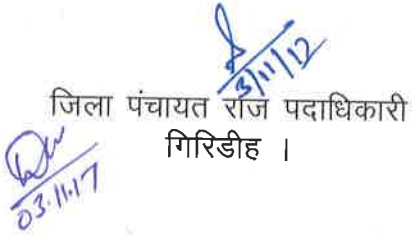 3/11/12
जिला पंचायत राज पदाधिकारी
गिरिडीह ।
03.11.17